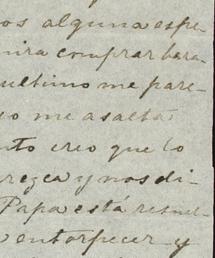 os alguna espe-
nira comprar bara-
ultimo me pare-
eo me asalta
nto creo que lo
rezca y nos di-
Papa está resuel-
a entorpecer y